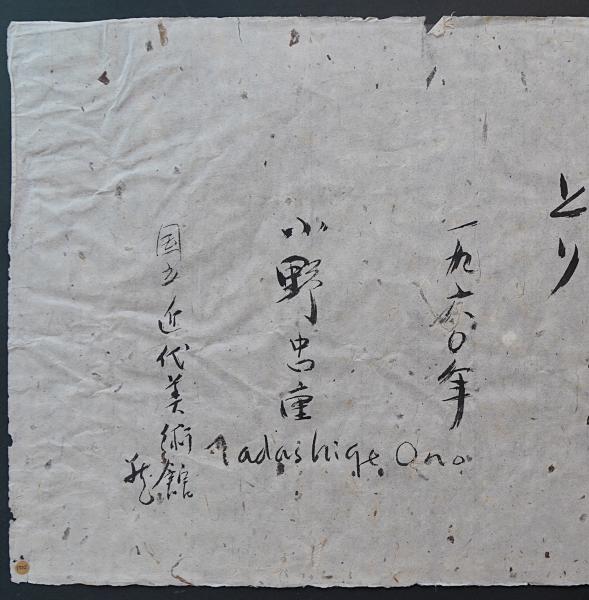 とり
一九六〇年
小野忠重
Tadashige Ono
国立近代美術館
蔵